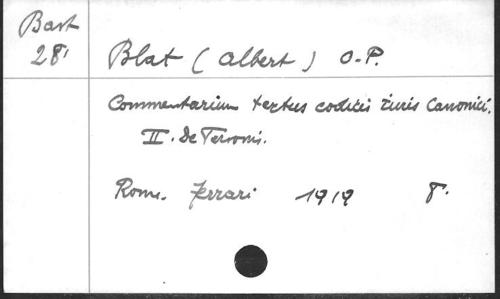 Bast
28'
Blat (Albert) O.P.
Commentarium textus codicis iuris Canonici.
II. de Personis.
Rome. Ferrari 1919 8°.